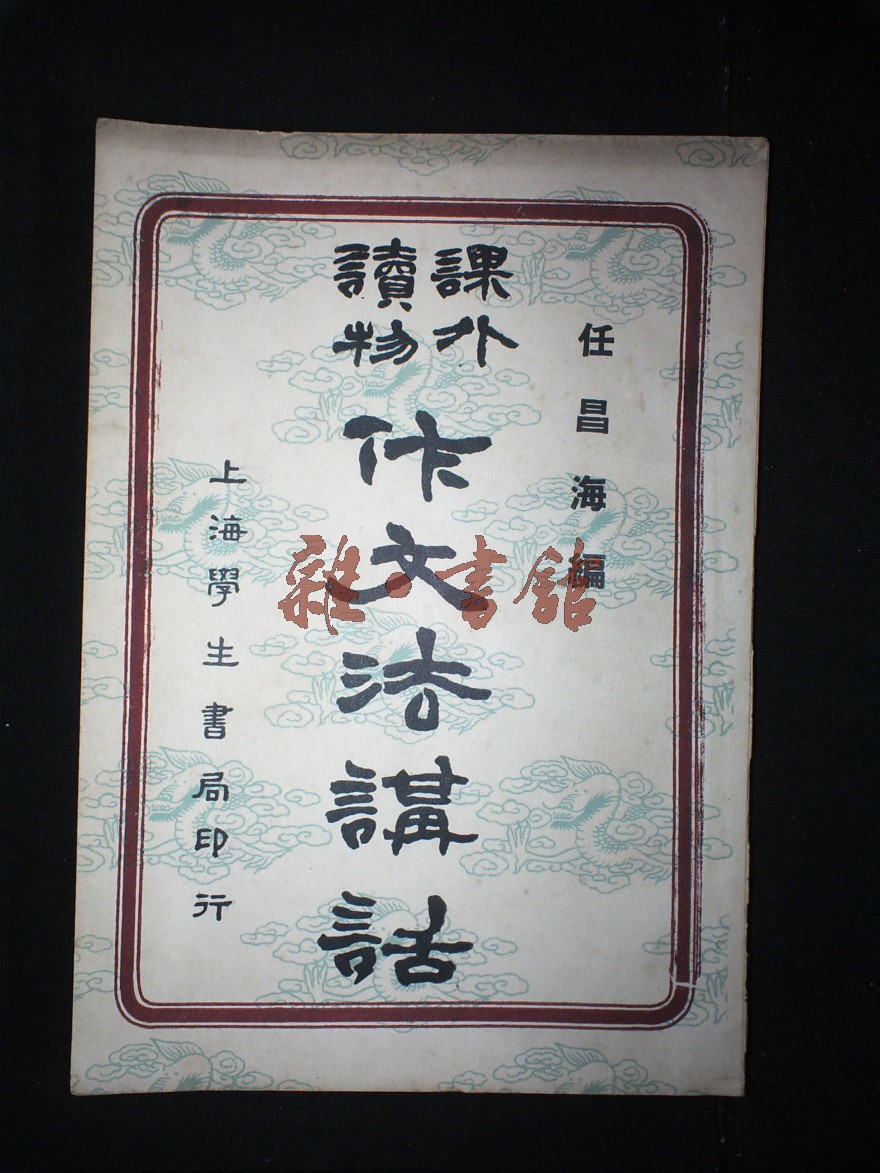 任昌海編
課外
讀物
作文法講話
上海學生書局印行
雜·書舘